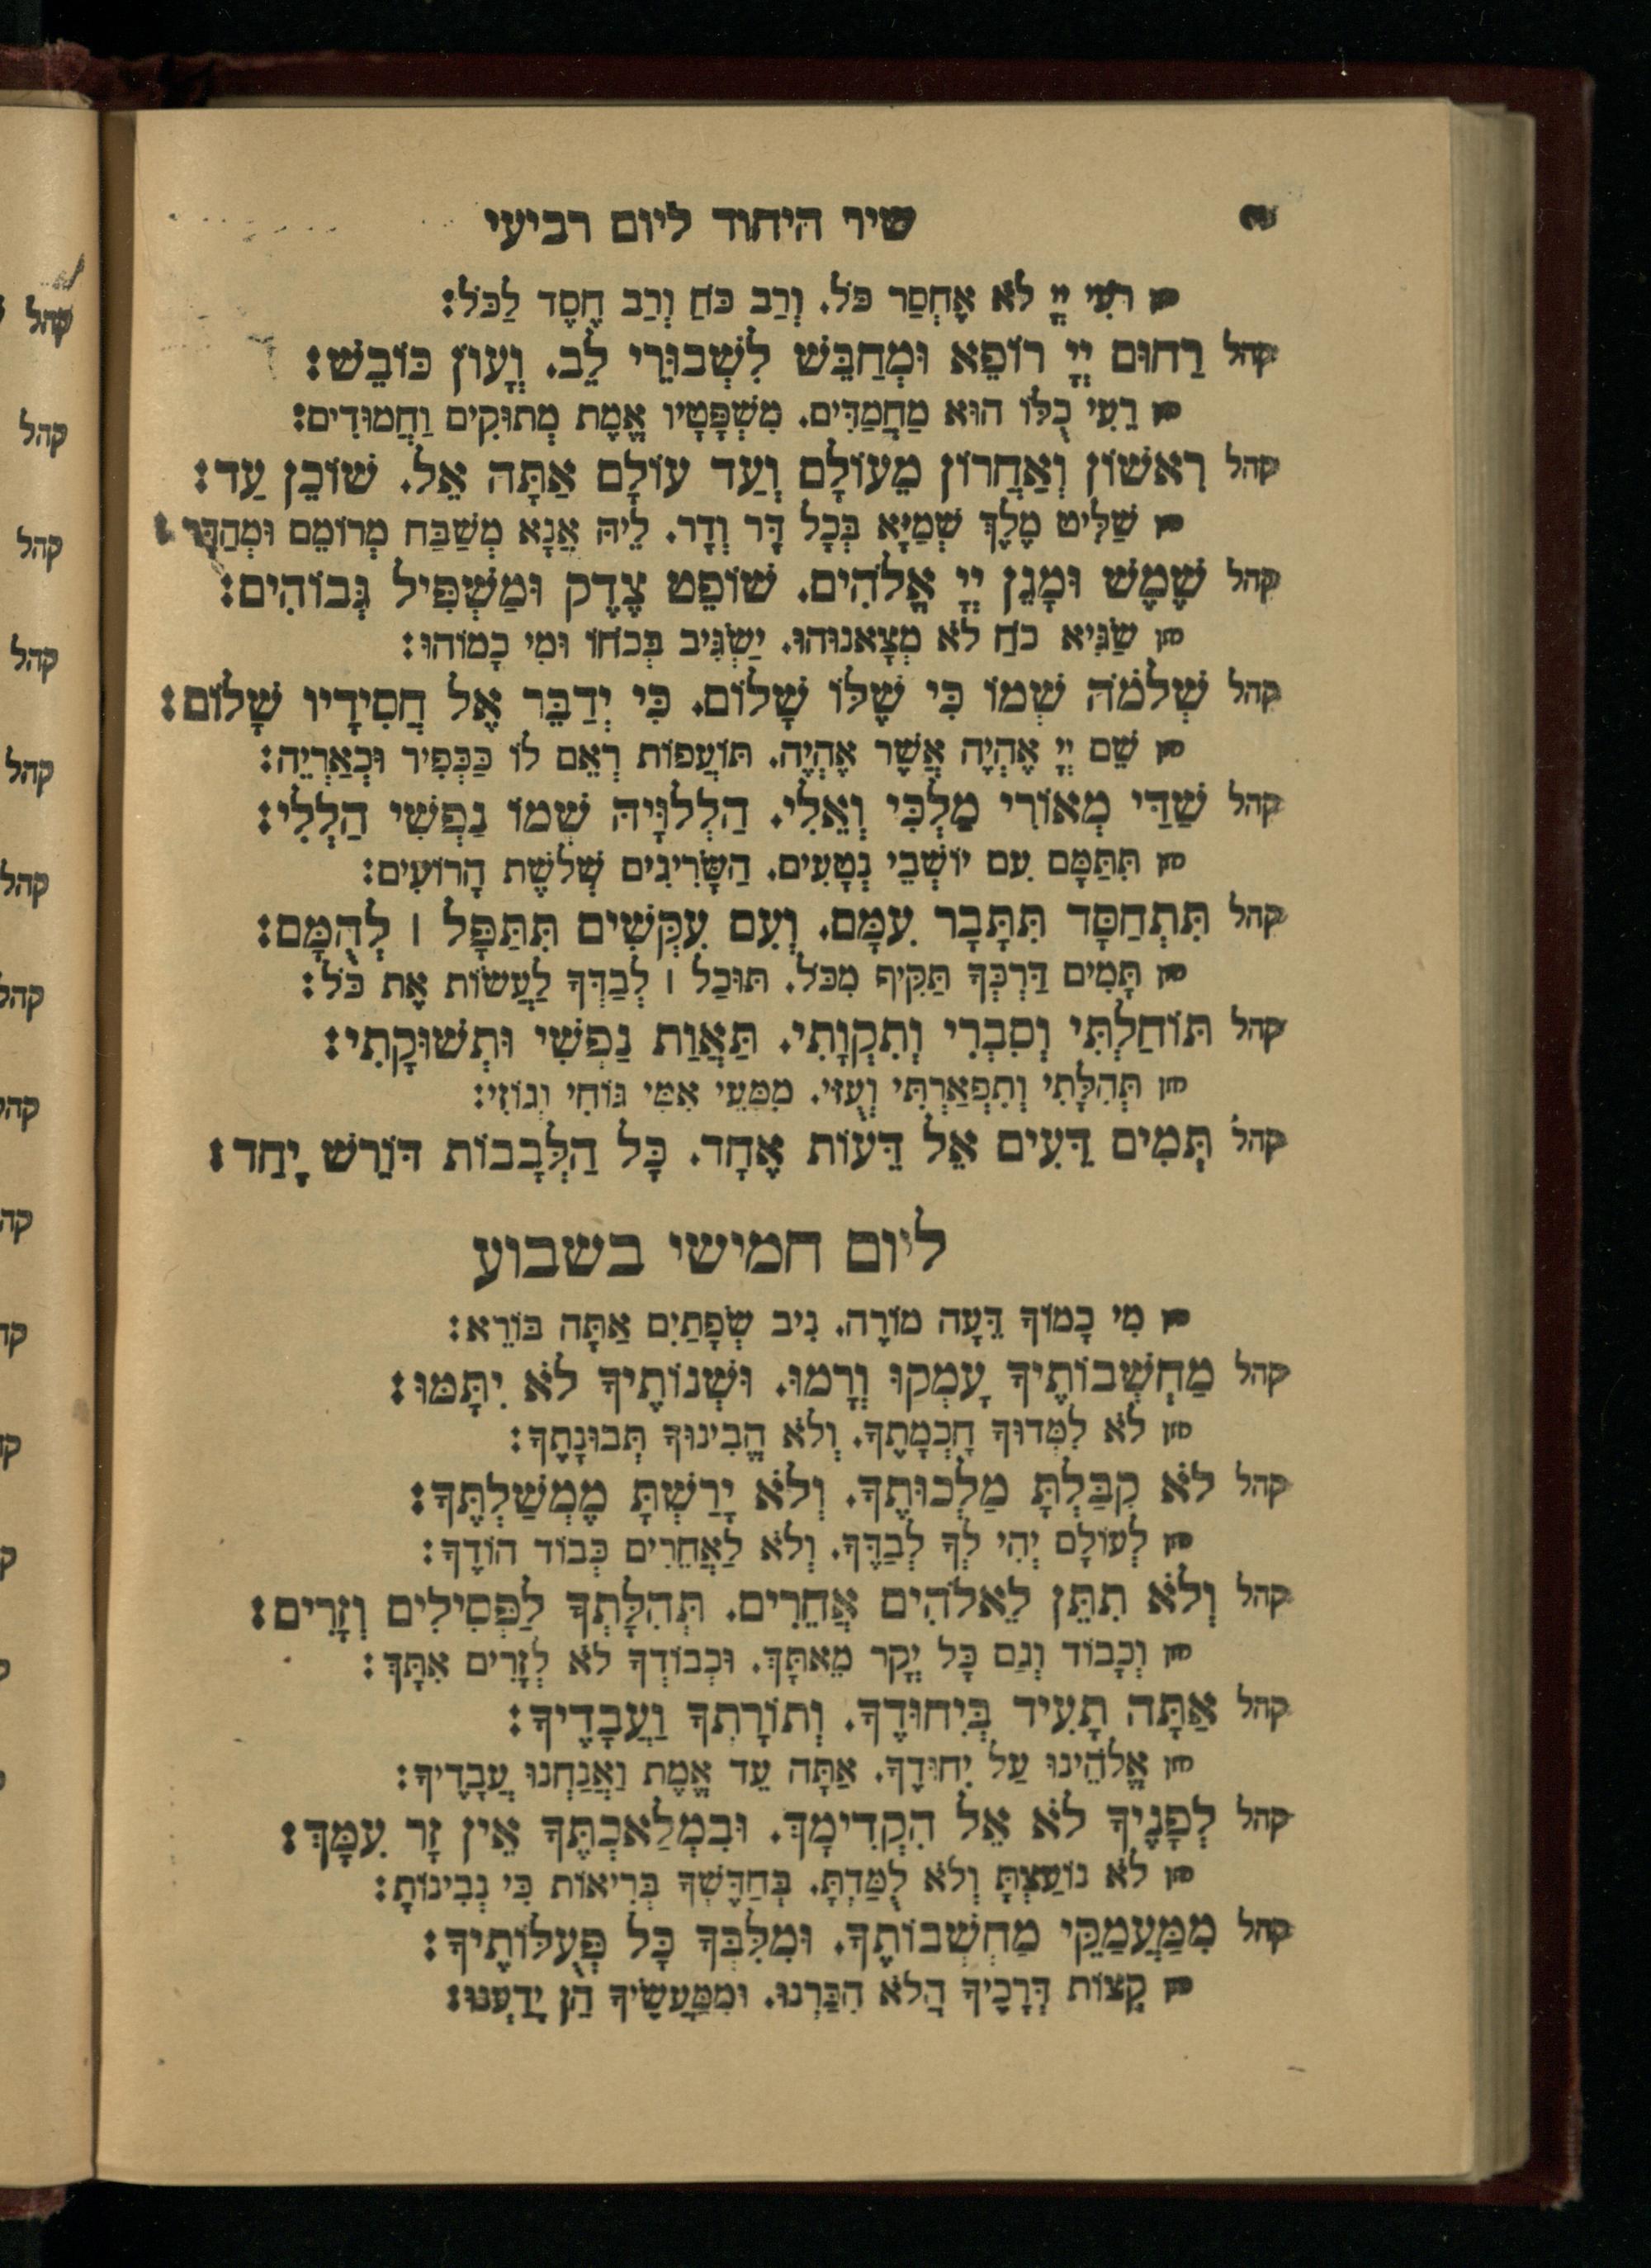 שיר היחוד ליום רביעי
חזן רֹעִי יְיָ לֹא אֶחְסַר כֹּל. וְרַב כֹּחַ וְרַב חֶסֶד לַכֹּל:
קהל רַחוּם יְיָ רוֹפֵא וּמְחַבֵּשׁ לִשְׁבוּרֵי לֵב. וְעָוֹן כּוֹבֵשׁ:
חזן רֵעִי כֻלּוֹ הוּא מַחֲמַדִּים. מִשְׁפָּטָיו אֱמֶת מְתוּקִים וַחֲמוּדִים:
קהל רִאשׁוֹן וְאַחֲרוֹן מֵעוֹלָם וְעַד עוֹלָם אַתָּה אֵל. שׁוֹכֵן עַד:
חזן שַׁלִּיט מֶלֶךְ שְׁמַיָּא בְּכָל דָּר וְדָר. לֵיהּ אֲנָא מְשַׁבַּח מְרוֹמֵם וּמְהַדָּר:
קהל שֶׁמֶשׁ וּמָגֵן יְיָ אֱלֹהִים. שׁוֹפֵט צֶדֶק וּמַשְׁפִּיל גְּבוֹהִים:
חזן שַׂגִּיא כֹחַ לֹא מְצָאנוּהוּ. יַשְׂגִּיב בְּכֹחוֹ וּמִי כָמוֹהוּ:
קהל שְׁלֹמֹה שְׁמוֹ כִּי שֶׁלּוֹ שָׁלוֹם. כִּי יְדַבֵּר אֶל חֲסִידָיו שָׁלוֹם:
חזן שֵׁם יְיָ אֶהְיֶה אֲשֶׁר אֶהְיֶה. תּוֹעֲפוֹת רְאֵם לוֹ כַּכְּפִיר וּכְאַרְיֵה:
קהל שַׁדַּי מְאוֹרִי מַלְכִּי וְאֵלִי. הַלְלוּיָהּ שְׁמוֹ נַפְשִׁי הַלְלִי:
חזן תִּתַּמָּם עִם יוֹשְׁבֵי נְטָעִים. הַשָּׂרִיגִים שְׁלֹשֶׁת הָרוֹעִים:
קהל תִּתְחַסָּד תִּתָּבָר עִמָּם. וְעִם עִקְּשִׁים תִּתַּפָּל ׀ לְהֻמָּם:
חזן תָּמִים דַּרְכְּךָ תַּקִּיף מִכֹּל. תּוּכַל ׀ לְבַדְּךָ לַעֲשׂוֹת אֶת כֹּל:
קהל תּוֹחַלְתִּי וְסִבְרִי וְתִקְוָתִי. תַּאֲוַת נַפְשִׁי וּתְשׁוּקָתִי:
חזן תְּהִלָּתִי וְתִפְאַרְתִּי וְעֻזִּי. מִמְּעֵי אִמִּי גּוֹחִי וְגוֹזִי:
קהל תְּמִים דֵּעִים אֵל דֵּעוֹת אֶחָד. כָּל הַלְּבָבוֹת דּוֹרֵשׁ יָחַד:
ליום חמישי בשבוע
חזן מִי כָמוֹךָ דֵּעָה מוֹרֶה. נִיב שְׂפָתַיִם אַתָּה בּוֹרֵא:
קהל מַחְשְׁבוֹתֶיךָ עָמְקוּ וְרָמוּ. וּשְׁנוֹתֶיךָ לֹא יִתָּמּוּ:
חזן לֹא לִמְּדוּךָ חָכְמָתֶךָ. וְלֹא הֱבִינוּךָ תְּבוּנָתֶךָ:
קהל לֹא קִבַּלְתָּ מַלְכוּתֶךָ. וְלֹא יָרַשְׁתָּ מֶמְשַׁלְתֶּךָ:
חזן לְעוֹלָם יְהִי לְךָ לְבַדֶּךָ. וְלֹא לַאֲחֵרִים כְּבוֹד הוֹדֶךָ:
קהל וְלֹא תִתֵּן לֵאלֹהִים אֲחֵרִים. תְּהִלָּתְךָ לַפְּסִילִים וְזָרִים:
חזן וְכָבוֹד וְגַם כָּל יְקָר מֵאִתָּךְ. וּכְבוֹדְךָ לֹא לְזָרִים אִתָּךְ:
קהל אַתָּה תָעִיד בְּיִחוּדֶךָ. וְתוֹרָתְךָ וַעֲבָדֶיךָ:
חזן אֱלֹהֵינוּ עַל יִחוּדֶךָ. אַתָּה עֵד אֱמֶת וַאֲנַחְנוּ עֲבָדֶיךָ:
קהל לְפָנֶיךָ לֹא אֵל הִקְדִימָךְ. וּבִמְלַאכְתְּךָ אֵין זָר עִמָּךְ:
חזן לֹא נוֹעַצְתָּ וְלֹא לֻמַּדְתָּ. בְּחַדֶּשְׁךָ בְּרִיאוֹת כִּי נְבִינוֹתָ:
קהל מִמַּעֲמַקֵּי מַחְשְׁבוֹתֶךָ. וּמִלִּבְּךָ כָּל פְּעֻלּוֹתֶיךָ:
חזן קְצוֹת דְּרָכֶיךָ הֲלֹא הִכַּרְנוּ. וּמִמַּעֲשֶׂיךָ הֵן יָדַעְנוּ: